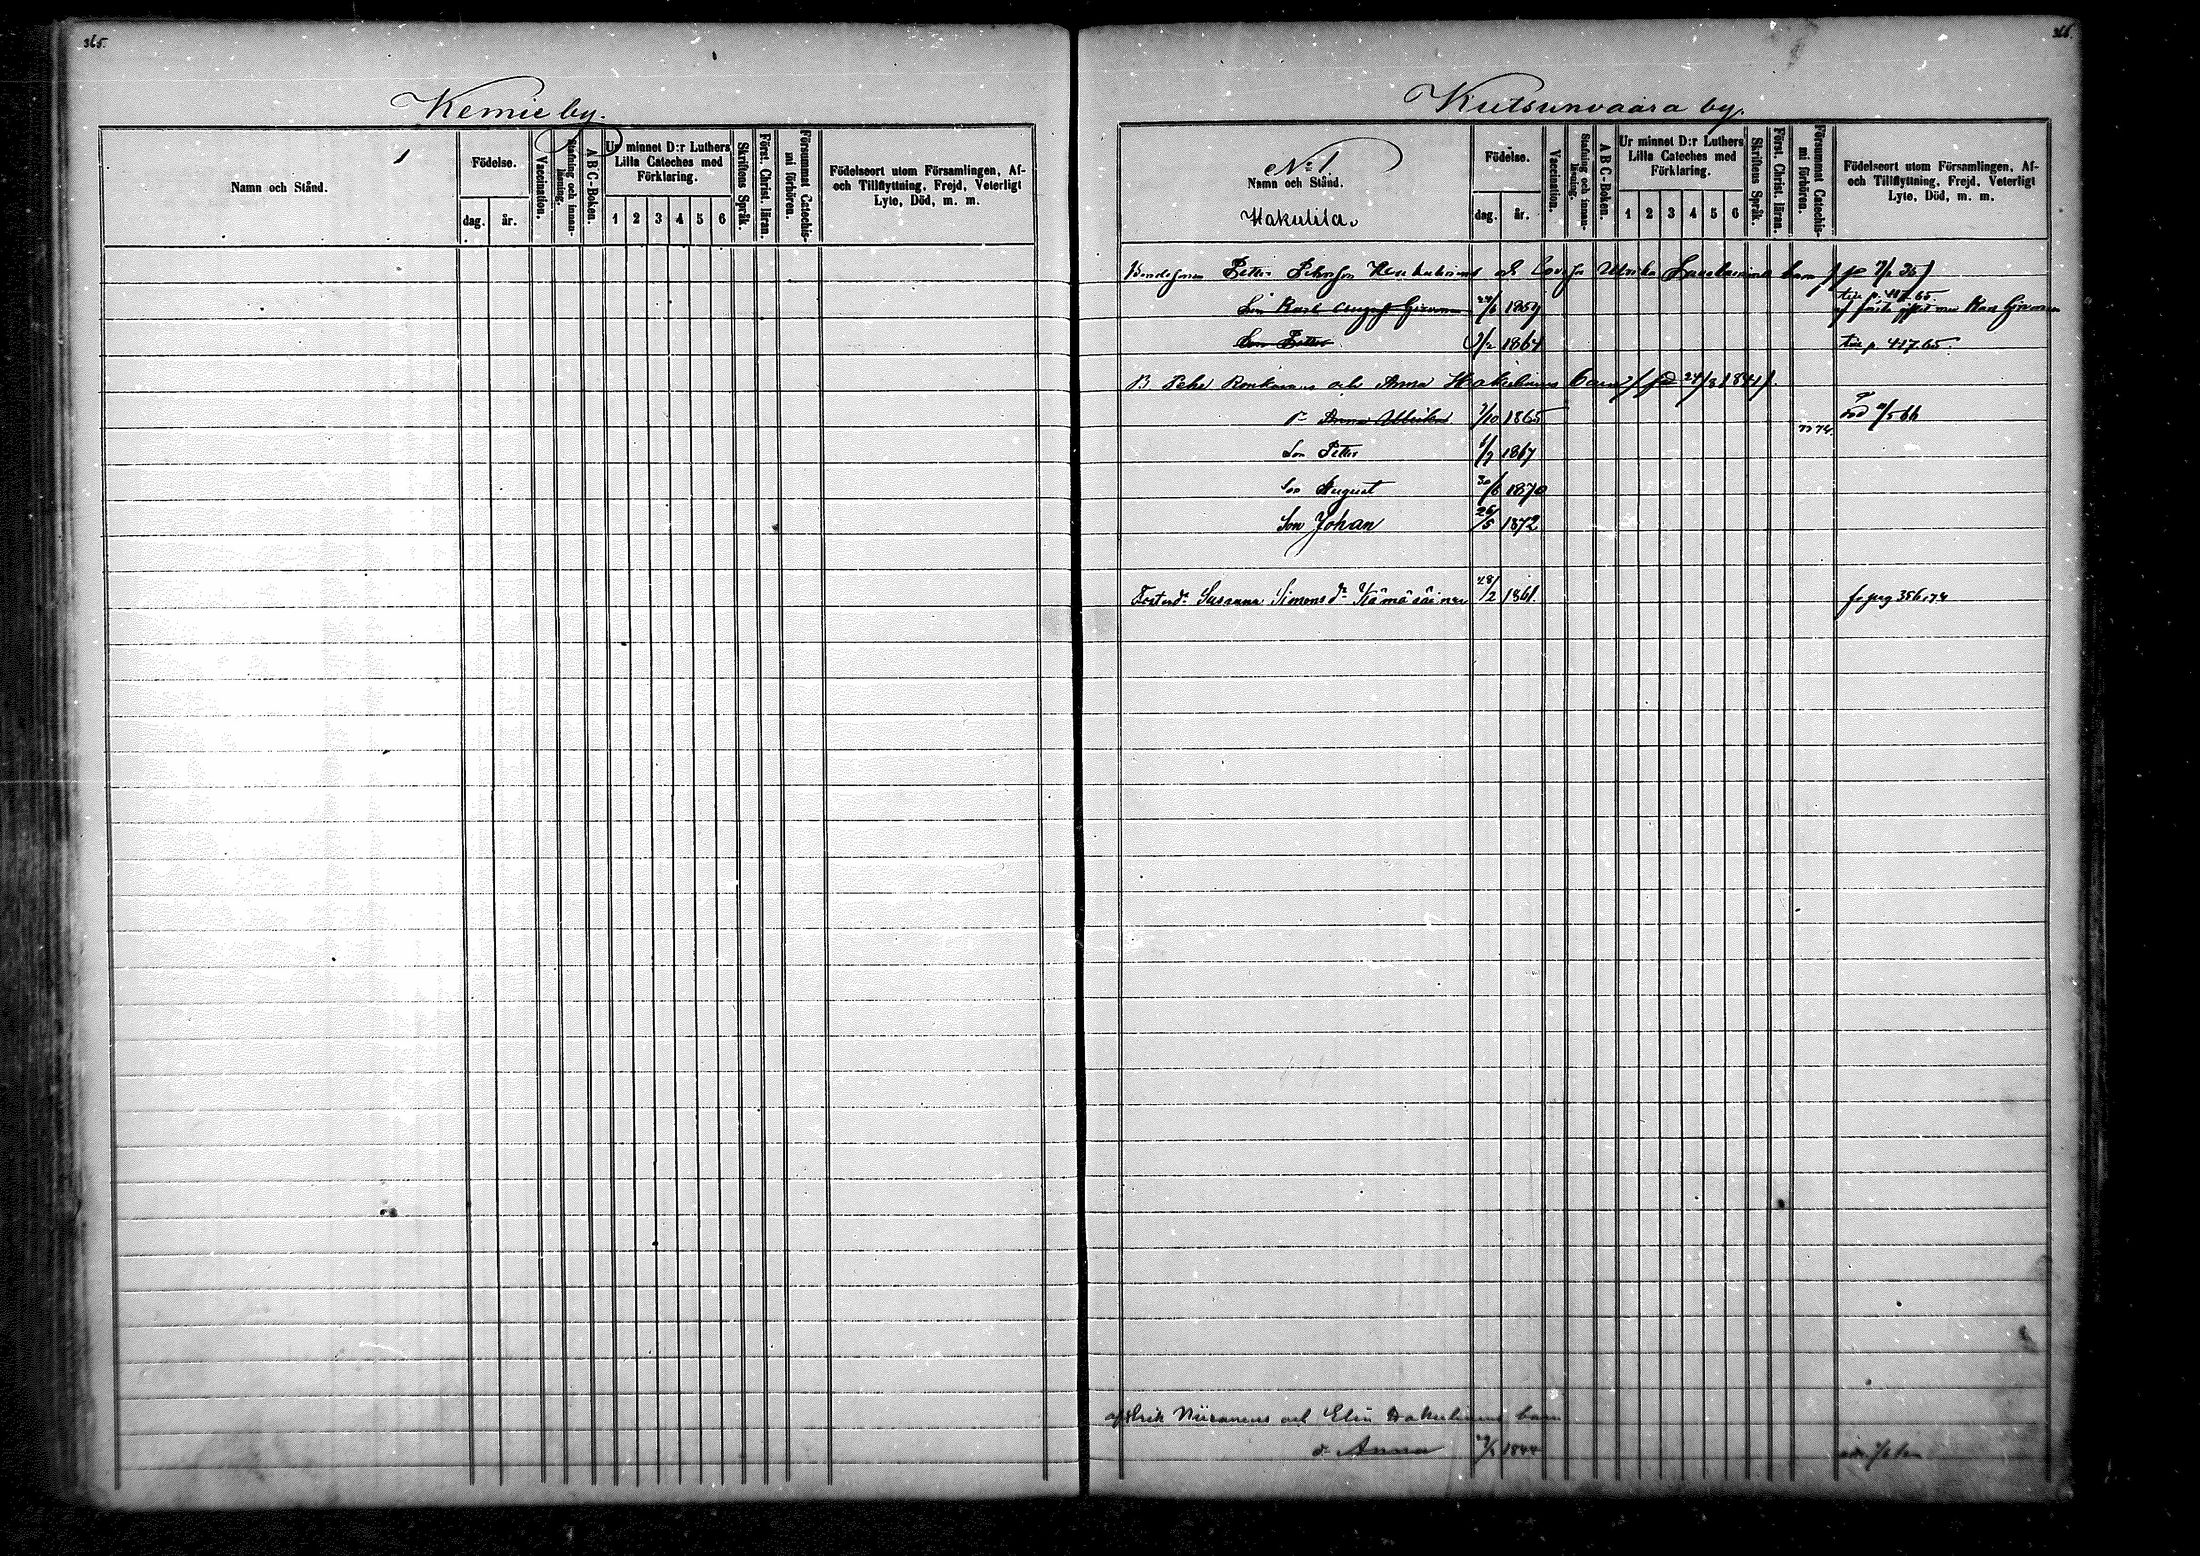 365.
Kemie by.
Namn och Stånd.
Födelse.
dag.
år.
Vaccination.
Stafning och innan-
läsning.
A B C-Boken.
Ur minnet D:r Luthers
Lilla Cateches med
Förklaring.
1 2 3 4 5 6
Skriftens Språk.
Först. Christ. läran.
Försummat Catechis-
mi förhören.
Födelseort utom Församlingen, Af-
och Tillflyttning, Frejd, Veterligt
Lyte, Död, m. m.
366.
Kutsunvaara by.
No 1.
Namn och Stånd.
Hakulila.
Födelse.
dag.
år.
Vaccination.
Stafning och innan-
läsning.
A B C-Boken.
Ur minnet D:r Luthers
Lilla Cateches med
Förklaring.
1 2 3 4 5 6
Skriftens Språk.
Först. Christ. läran.
Försummat Catechis-
mi förhören.
Födelseort utom Församlingen, Af-
och Tillflyttning, Frejd, Veterligt
Lyte, Död, m. m.
Bondeson Petter Pehrsson och Lovisa Ulrika barn
Son Karl August 1859 p. 417.65.
Son Petter 1/2 1864 p. 417.65.
B Pehr Ronkanens och Anna Hakulinens barn (fd 24/3 1841).
dr Anna Ulrika 7/10 1865 död 11/5 66
74.
Son Petter 1/7 1867
Son August 30/6 1870
Son Johan 26/5 1872
Fosterdr Susanna Simonsdr Kämäräinen 28/2 1861. fr pag 356,74
afl Erik Niiranens och Elin Hakulinens barn
dr Anna 1844